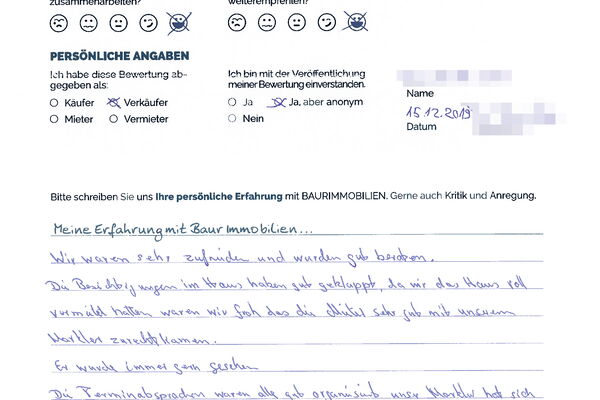 zusammenarbeiten?
weiterempfehlen?
PERSÖNLICHE ANGABEN
Ich habe diese Bewertung ab-
gegeben als:
Käufer Verkäufer
Mieter Vermieter
Ich bin mit der Veröffentlichung
meiner Bewertung einverstanden.
Ja Ja, aber anonym
Nein
Name
15.12.2019
Datum
Bitte schreiben Sie uns Ihre persönliche Erfahrung mit BAURIMMOBILIEN. Gerne auch Kritik und Anregung.
Meine Erfahrung mit Baur Immobilien...
Wir waren sehr zufrieden und wurden gut beraten.
Die Besichtigungen im Haus haben gut geklappt, da wir das Haus voll
vermietet hatten waren wir froh das die Mieter sehr gut mit unserem
Markler zurechtkamen.
Er wurde immer gern gesehen
Die Terminabsprachen waren alle gut organisiert unser Markler hat sich